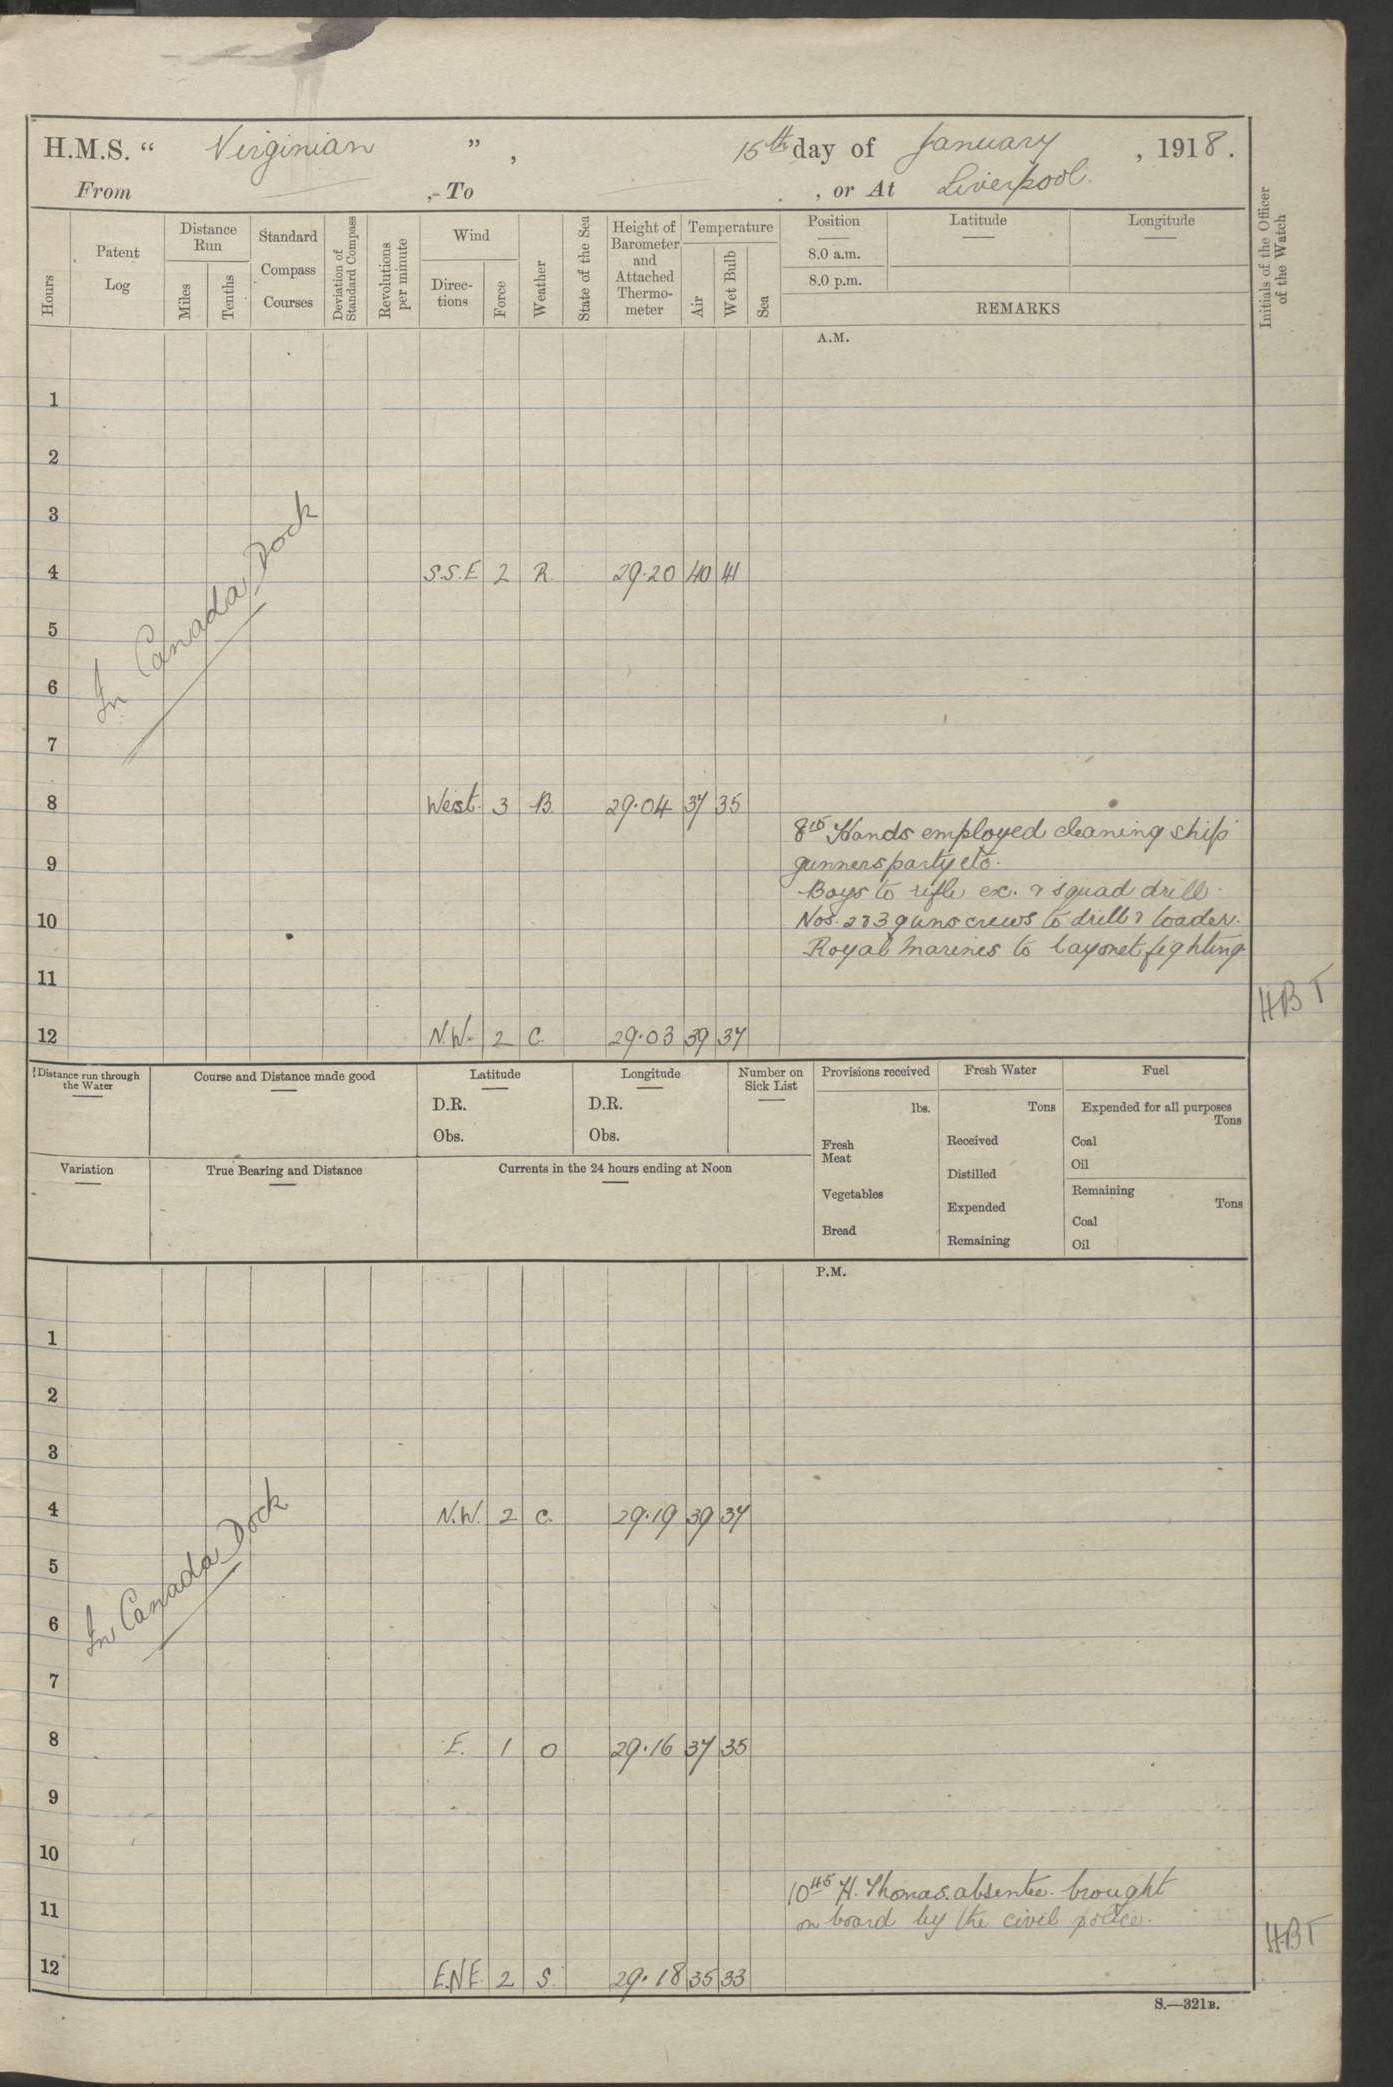 H.M.S. “ Virginian ” , 15th day of January , 1918.
From ,- To , or At Liverpool.
Hours
Patent Log
Distance Run
Miles
Tenths
Standard Compass Courses
Deviation of Standard Compass
Revolutions per minute
Wind
Direc-tions
Force
Weather
State of the Sea
Height of Barometer and Attached Thermo-meter
Temperature
Air
Wet Bulb
Sea
Position
8.0 a.m.
8.0 p.m.
Latitude
Longitude
REMARKS
Initials of the Officer of the Watch
A.M.
1
2
3
In Canada Dock
4 S.S.E 2 R. 29.20 40 41
5
6
7
8 West. 3 B. 29.04 37 35
8 15 Hands employed cleaning ship
9 gunners party etc.
Boys to rifle ex. & squad drill.
10 Nos. 2 & 3 guns crews to drill & loader.
Royal Marines to bayonet fighting
11
HBT
12 N.W. 2 C. 29.03 39 37
Distance run through the Water
Course and Distance made good
Latitude
D.R.
Obs.
Longitude
D.R.
Obs.
Number on Sick List
Provisions received
lbs.
Fresh Meat
Vegetables
Bread
Fresh Water
Tons
Received
Distilled
Expended
Remaining
Fuel
Expended for all purposes
Tons
Coal
Oil
Remaining
Tons
Coal
Oil
Variation
True Bearing and Distance
Currents in the 24 hours ending at Noon
P.M.
1
2
3
4 N.W. 2 C. 29.19 39 37
In Canada Dock
5
6
7
8 E. 1 O 29.16 37 35
9
10
10 45 H. Thomas. absentee. brought
11 on board by the civil police.
HBT
12 E.N.E 2 S. 29.18 35 33
S.—321B.